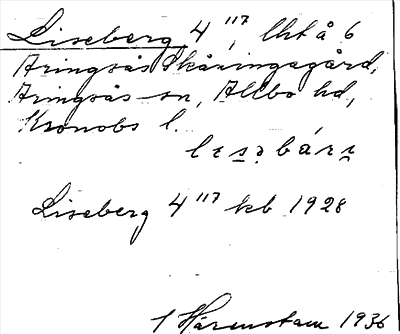 Liseberg 4¹¹⁷, lht å 6
Aringsås Skåningagård,
Aringsås sn, Allbo hd,
Kronobs l.
Liseberg 4¹¹⁷ kb 1928
1936